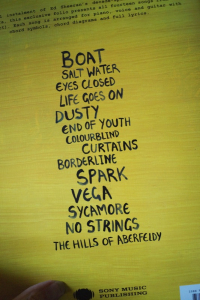 instalment of Ed Sheeran's decade-
this exclusive folio presents all fourteen songs
Each song is arranged for piano, voice and guitar with
chord symbols, chord diagrams and full lyrics
BOAT
SALT WATER
EYES CLOSED
LIFE GOES ON
DUSTY
END OF YOUTH
COLOURBLIND
CURTAINS
BORDERLINE
SPARK
VEGA
SYCAMORE
NO STRINGS
THE HILLS OF ABERFELDY
SONY MUSIC
PUBLISHING